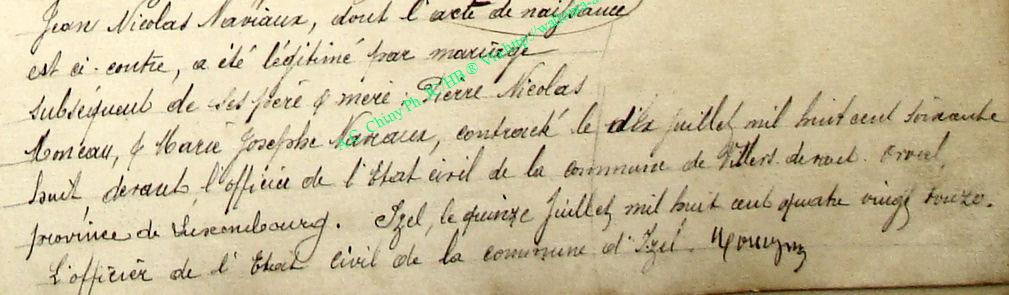 Jean Nicolas Naviaux, dont l'acte de naissance
est ci-contre, a été légitimé par mariage
subséquent de ses père & mère : Pierre Nicolas
Moneau, & Marie Josephe Naviaux, contracté le dix juillet mil huit cent soixante
huit, devant l'officier de l'Etat civil de la commune de Villers devant Orval,
province de Luxembourg. Izel, le quinze juillet mil huit cent quatre vingt
L'officier de l'Etat civil de la commune d'Izel